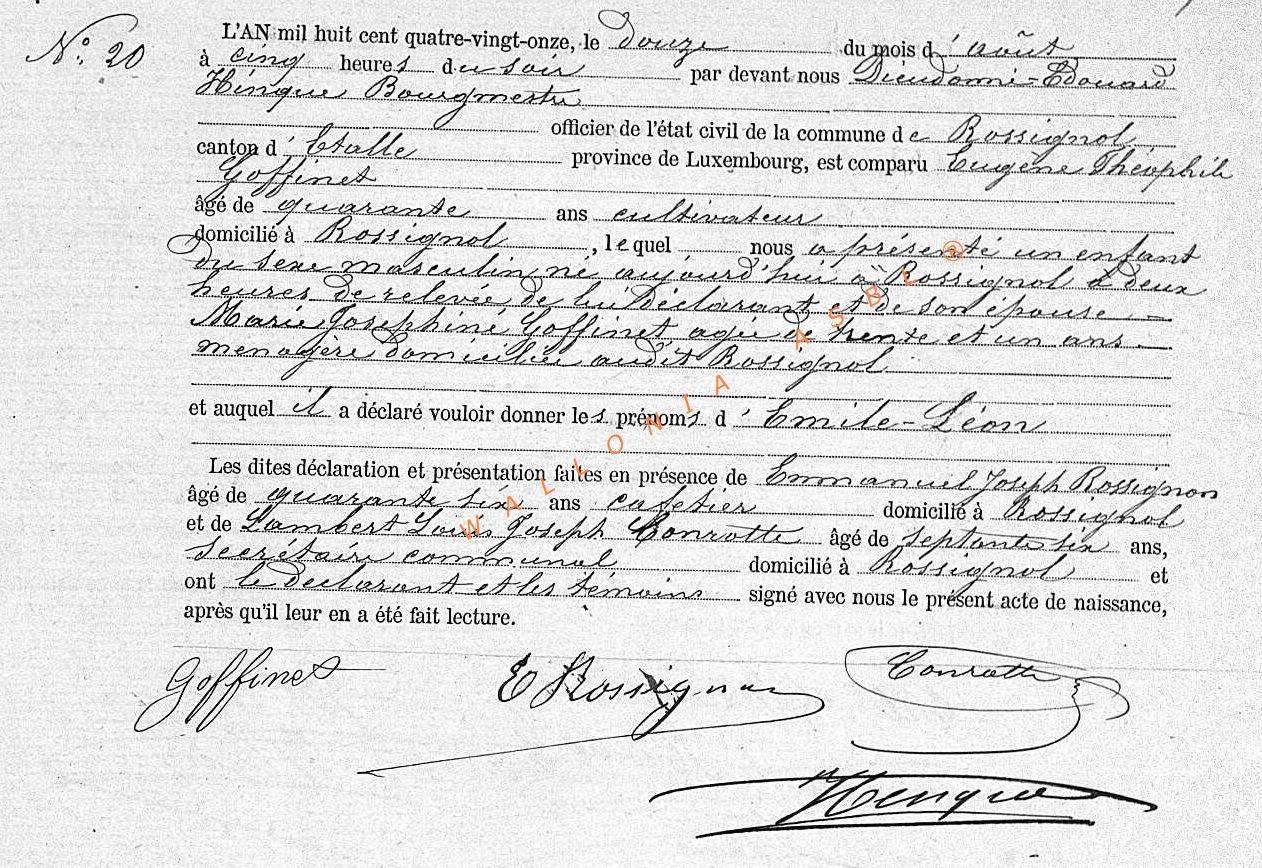 N°. 20
L'AN mil huit cent quatre-vingt-onze, le Douze du mois d' août
à cinq heures du soir par devant nous Dieudonné-Edouard
Hinque Bourgmestre
officier de l'état civil de la commune de Rossignol
canton d' Etalle province de Luxembourg, est comparu Eugène Théophile
Goffinet
âgé de quarante ans cultivateur
domicilié à Rossignol, lequel nous a présenté un enfant
du sexe masculin né aujourd'hui à Rossignol à deux
heures de relevée de lui Déclarant et de son épouse –
Marie Josephine Goffinet agée de trente et un ans –
menagère domiciliée audit Rossignol
et auquel il a déclaré vouloir donner les prénoms d' Emile-Léon
Les dites déclaration et présentation faites en présence de Emmanuel Joseph Rossignon
âgé de quarante six ans cafetier domicilié à Rossignol
et de Lambert Louis Joseph Conrotte âgé de septante six ans,
secrétaire communal domicilié à Rossignol et
ont le déclarant et les témoins signé avec nous le présent acte de naissance,
après qu'il leur en a été fait lecture.
Goffinet E Rossignon Conrotte
Henque
WALLONIA ASBL ®